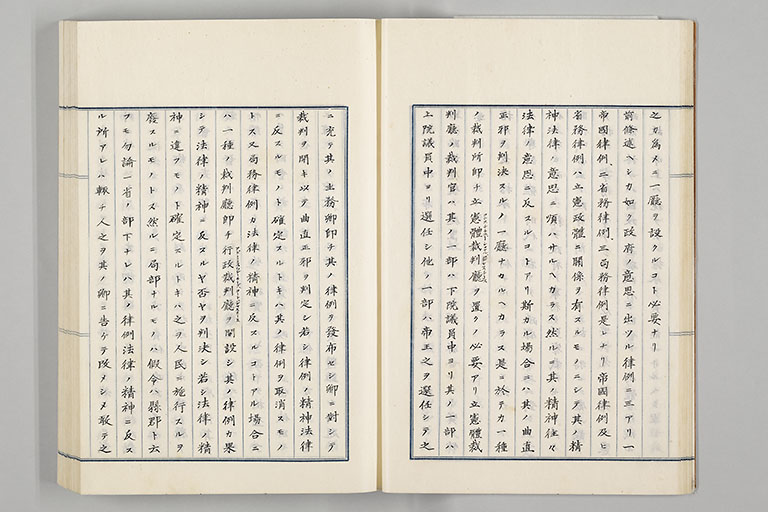 之カ為メニ一廳ヲ設クルコト必要ナリ
前條述ヘシカ如ク政府ノ意思ニ出ツル律例ニ三アリ一
帝國律例、二省務律例、三局務律例是レナリ帝國律例及ヒ
省務律例ハ立憲政體ニ關係ヲ有スルモノニシテ其ノ精
神法律ノ意思ニ須ハサルヘカラス然ルニ其ノ精神往々
法律ノ意思ニ反スルコトアリ斯カル場合ニハ其ノ曲直
正邪ヲ判決スルノ一廳ナカルヘカラス是ニ於テカ一種
ノ裁判所即チ立憲體裁判廳ヲ置クノ必要アリ立憲體裁
判廳ノ裁判官ハ其ノ一部ハ下院議員中ヨリ其ノ一部ハ
上院議員中ヨリ選任シ他ノ一部ハ帝王之ヲ選任シテ之
ニ充テ其ノ主務卿即チ其ノ律例ヲ發布セシ卿ニ對シテ
裁判ヲ開キ以テ曲直正邪ヲ判定シ若シ律例ノ精神法律
ニ反スルモノト確定スルトキハ其ノ律例ヲ取消スモノ
トス又局務律例カ法律ノ精神ニ反スルコトアル場合ニ
ハ一種ノ裁判廳即チ行政裁判廳ヲ開設シ其ノ律例カ果
シテ法律ノ精神ニ反スルヤ否ヤヲ判決シ若シ法律ノ精
神ニ違フモノト確定スルトキハ之ヲ人民ニ施行スルヲ
廢スルモノトス然ルニ局部ナルモノハ假令ハ縣郡ト云
フモ勿論一省ノ部下ナレハ其ノ律例法律ノ精神ニ反ス
ル所アレハ輒チ人之ヲ其ノ卿ニ告ケテ改タシメ敢テ之